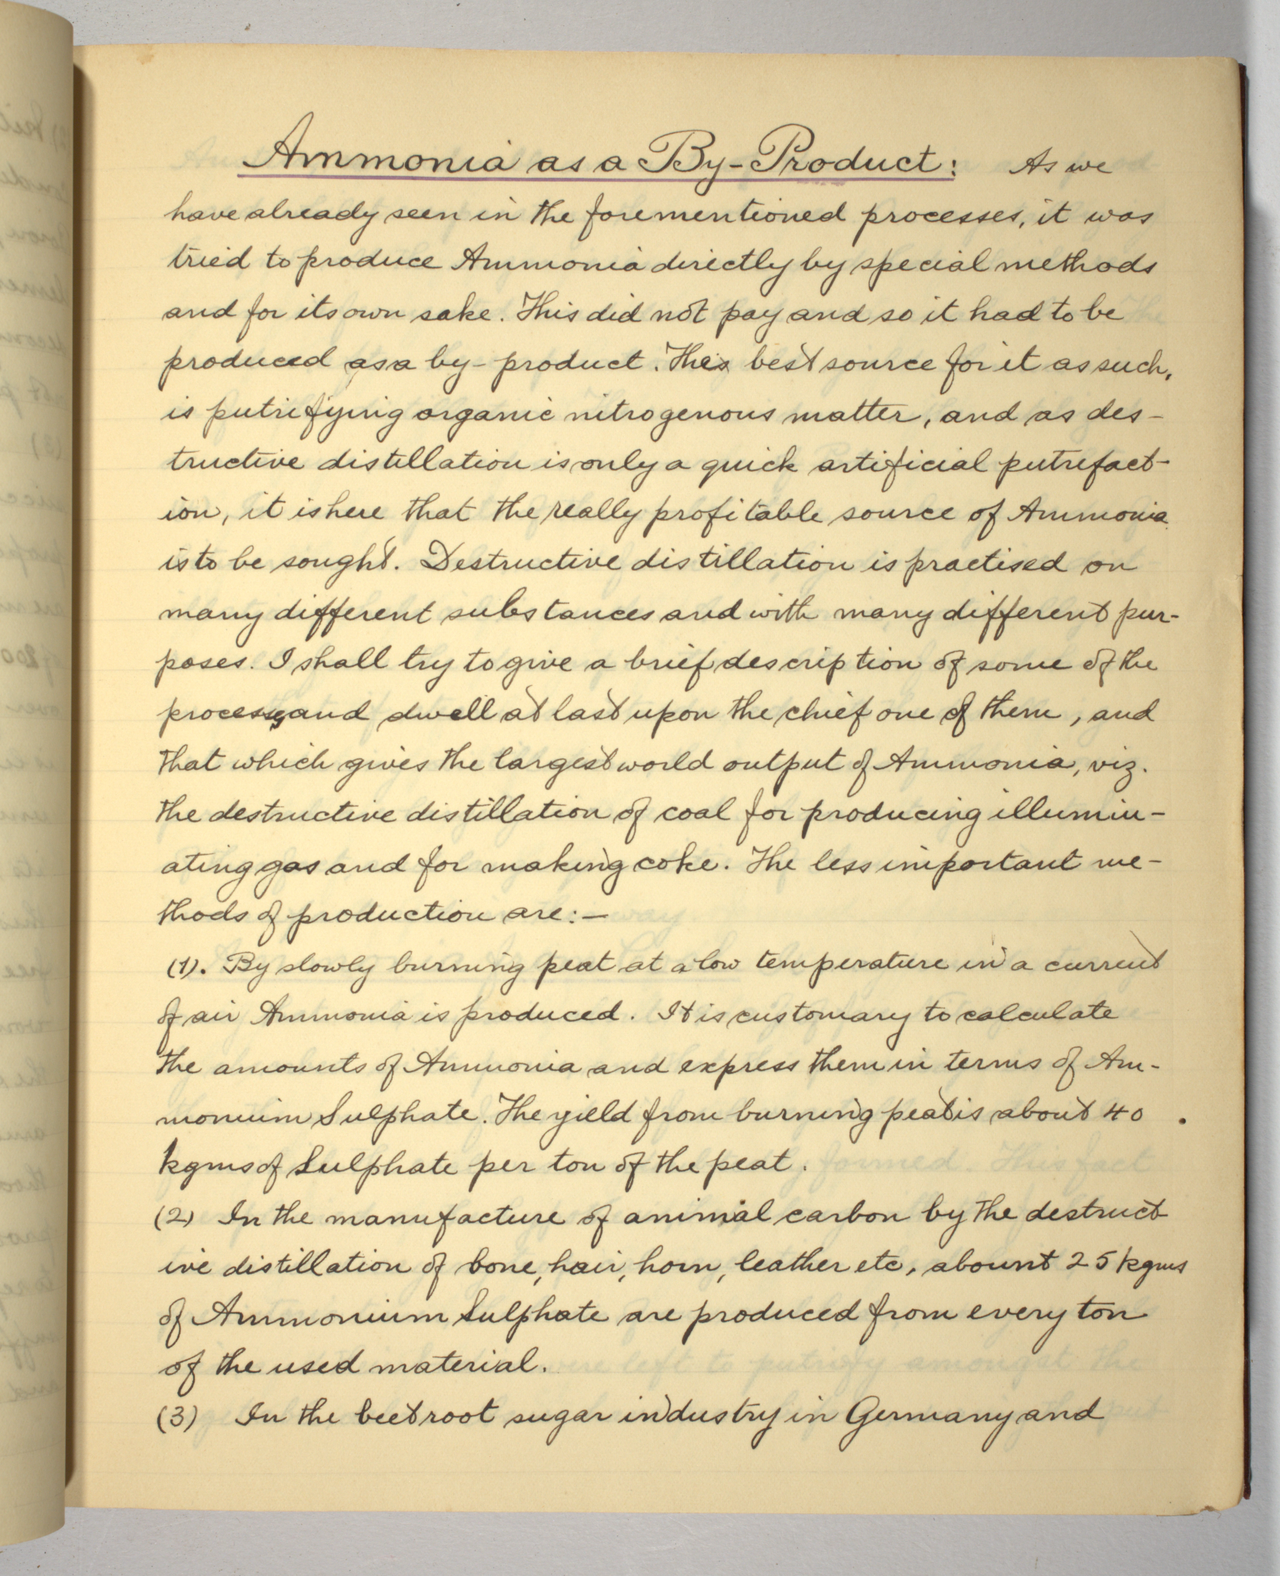 Ammonia as a By-Product: As we
have already seen in the forementioned processes, it was
tried to produce Ammonia directly by special methods
and for its own sake. This did not pay and so it had to be
produced as a by-product. The best source for it as such,
is putrifying organic nitrogenous matter, and as des-
tructive distillation is only a quick artificial putrefact-
ion, it is here that the really profitable source of Ammonia
is to be sought. Destructive distillation is practised on
many different substances and with many different pur-
poses. I shall try to give a brief description of some of the
process and dwell at last upon the chief one of them, and
that which gives the largest world output of Ammonia, viz.
the destructive distillation of coal for producing illumin-
ating gas and for making coke. The less important me-
thods of production are:-
(1). By slowly burning peat at a low temperature in a current
of air Ammonia is produced. It is customary to calculate
the amounts of Ammonia and express them in terms of Am-
monium Sulphate. The yield from burning peat is about 40
kgms of Sulphate per ton of the peat.
(2) In the manufacture of animal carbon by the destruct
ive distillation of bone, hair, horn, leather etc, abount 25 kgms
of Ammonium Sulphate are produced from every ton
of the used material.
(3) In the beetroot sugar industry in Germany and